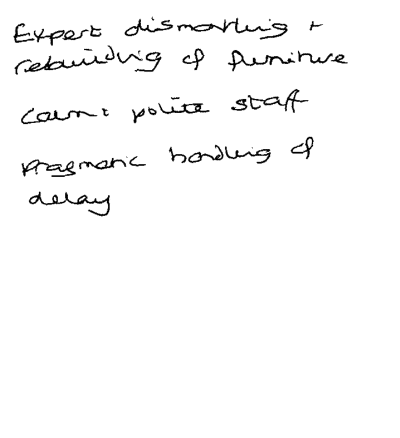 Expert dismantling +
rebuilding of furniture
Calm + polite staff
Pragmatic handling of
delay